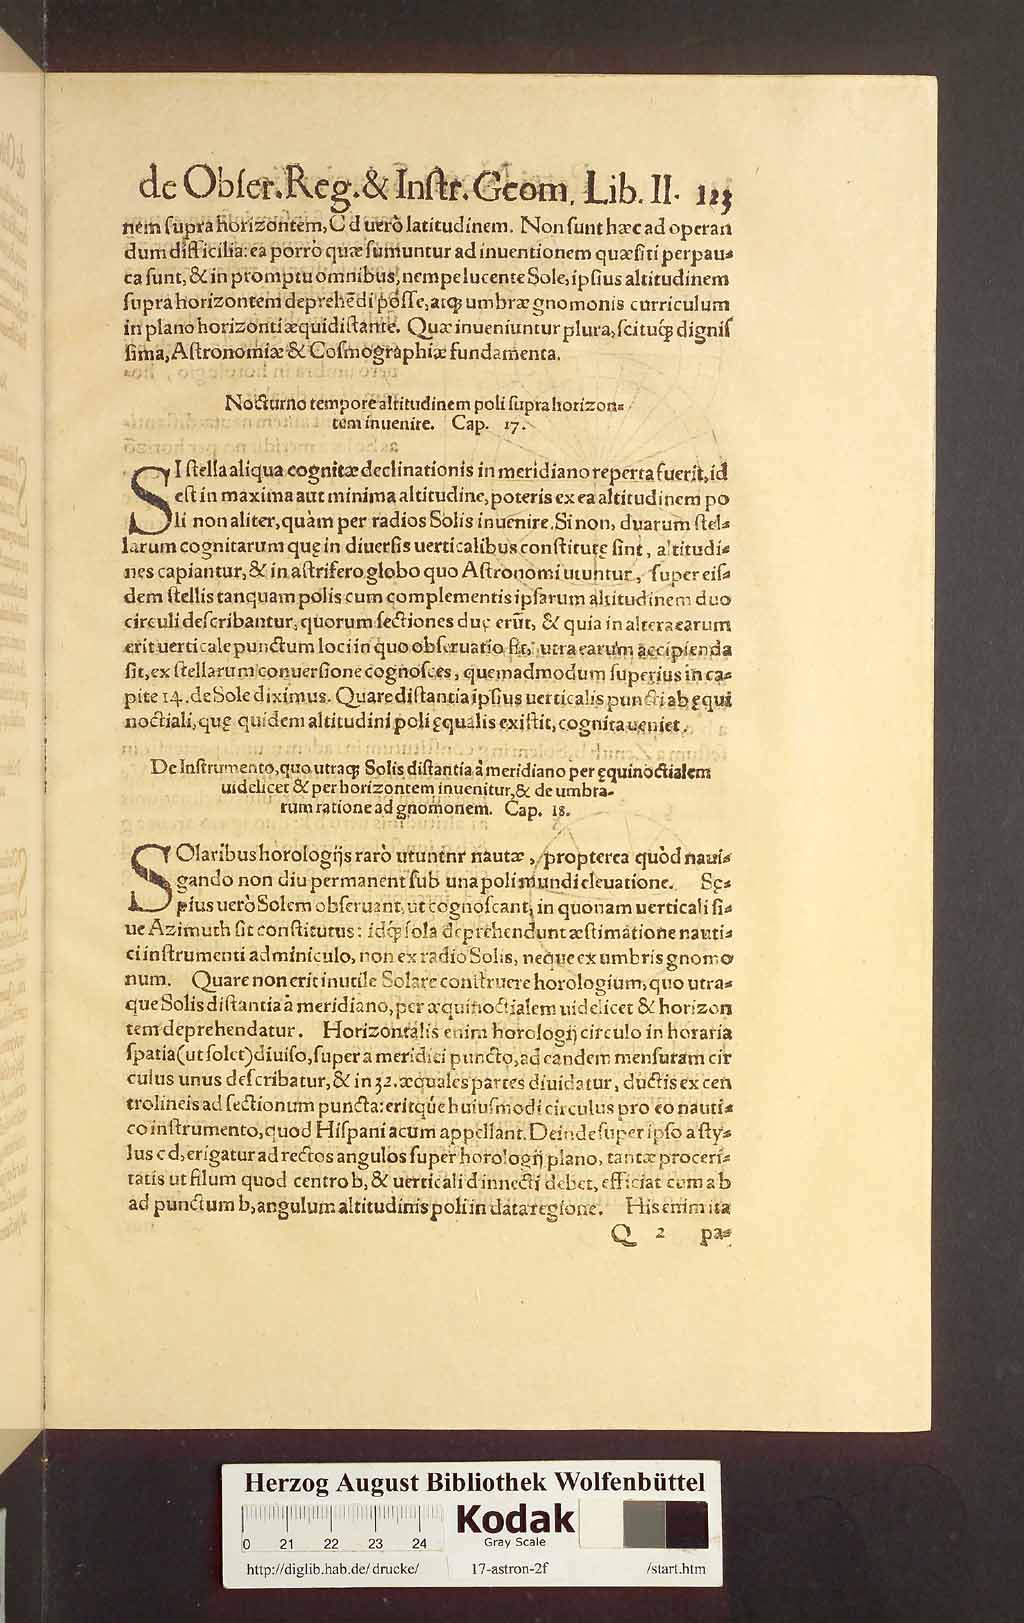 de Obſer. Reg. & Inſtr. Geom. Lib. II. 123
nem ſupra horizontem, C d uerò latitudinem. Non ſunt hæc ad operan
dum difficilia: ea porrò quæ ſumuntur ad inuentionem quæſiti perpau-
ca ſunt, & in promptu omnibus, nempe lucente Sole, ipſius altitudinem
ſupra horizontem deprehẽdi poſſe, atq; umbræ gnomonis curriculum
in plano horizonti æquidiſtante. Quæ inueniuntur plura, ſcituq; digniſ
ſima, Aſtronomiæ & Coſmographiæ fundamenta.
Nocturno tempore altitudinem poli ſupra horizon-
tem inuenire. Cap. 17.
SI ſtella aliqua cognitæ declinationis in meridiano reperta fuerit, id
eſt in maxima aut minima altitudine, poteris ex ea altitudinem po
li non aliter, quàm per radios Solis inuenire. Si non, duarum ſtel-
larum cognitarum quę in diuerſis uerticalibus conſtitutę ſint, altitudi-
nes capiantur, & in aſtrifero globo quo Aſtronomi utuntur, ſuper eiſ-
dem ſtellis tanquam polis cum complementis ipſarum altitudinem duo
circuli deſcribantur, quorum ſectiones duę erũt, & quia in altera earum
erit uerticale punctum loci in quo obſeruatio fit, utra earum accipienda
ſit, ex ſtellarum conuerſione cognoſces, quemadmodum ſuperius in ca-
pite 14. de Sole diximus. Quare diſtantia ipſius uerticalis puncti ab ęqui
noctiali, quę quidem altitudini poli ęqualis exiſtit, cognita ueniet.
De Inſtrumento, quo utraq; Solis diſtantia à meridiano per ęquinoctialem
uidelicet & per horizontem inuenitur, & de umbra-
rum ratione ad gnomonem. Cap. 18.
SOlaribus horologijs rarò utuntnr nautæ, propterea quòd naui-
gando non diu permanent ſub una poli mundi eleuatione. Sę-
pius uerò Solem obſeruant, ut cognoſcant, in quonam uerticali ſi-
ue Azimuth ſit conſtitutus: idq; ſola deprehendunt æſtimatione nauti-
ci inſtrumenti adminiculo, non ex radio Solis, neque ex umbris gnomo
num. Quare non erit inutile Solare conſtruere horologium, quo utra-
que Solis diſtantia à meridiano, per æquinoctialem uidelicet & horizon
tem deprehendatur. Horizontalis enim horologij circulo in horaria
ſpatia (ut ſolet) diuiſo, ſuper a meridiei puncto, ad eandem menſuram cir
culus unus deſcribatur, & in 32. æquales partes diuidatur, ductis ex cen
tro lineis ad ſectionum puncta: eritq́ue huiuſmodi circulus pro eo nauti-
co inſtrumento, quod Hiſpani acum appellant. Deinde ſuper ipſo a ſty-
lus c d, erigatur ad rectos angulos ſuper horologij plano, tantæ proceri-
tatis ut filum quod centro b, & uerticali d innecti debet, efficiat cum a b
ad punctum b, angulum altitudinis poli in data regione. His enim ita
Q 2 pa-
Herzog August Bibliothek Wolfenbüttel
0 21 22 23 24
Kodak
Gray Scale
http://diglib.hab.de/drucke/ 17-astron-2f /start.htm